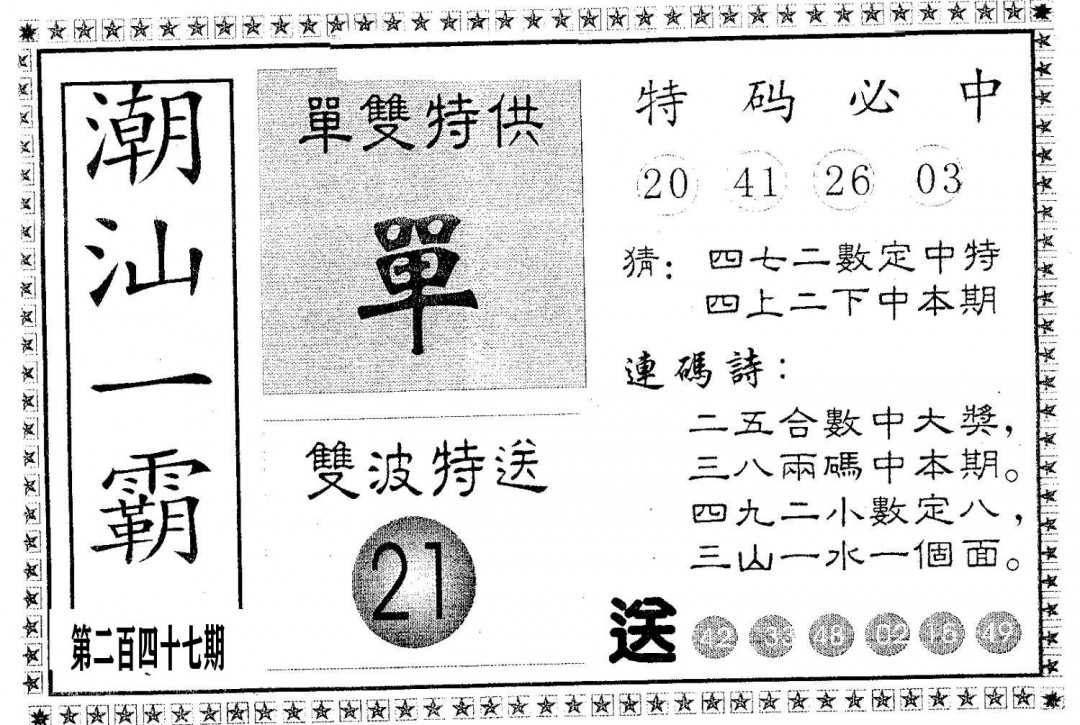 潮汕一霸
第二百四十七期
單雙特供
單
雙波特送
21
特码必中
20 41 26 03
猜：四七二數定中特
四上二下中本期
連碼詩：
二五合數中大獎，
三八兩碼中本期。
四九二小數定八，
三山一水一個面。
送 42 33 48 02 16 49